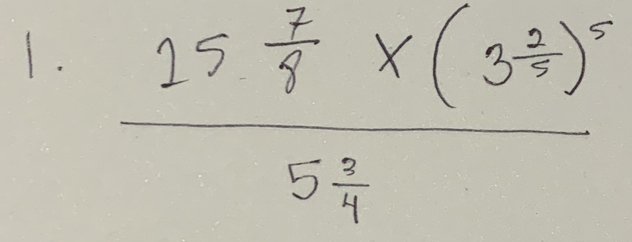 1. 25 7/8 × (3 2/5)^5
5 3/4